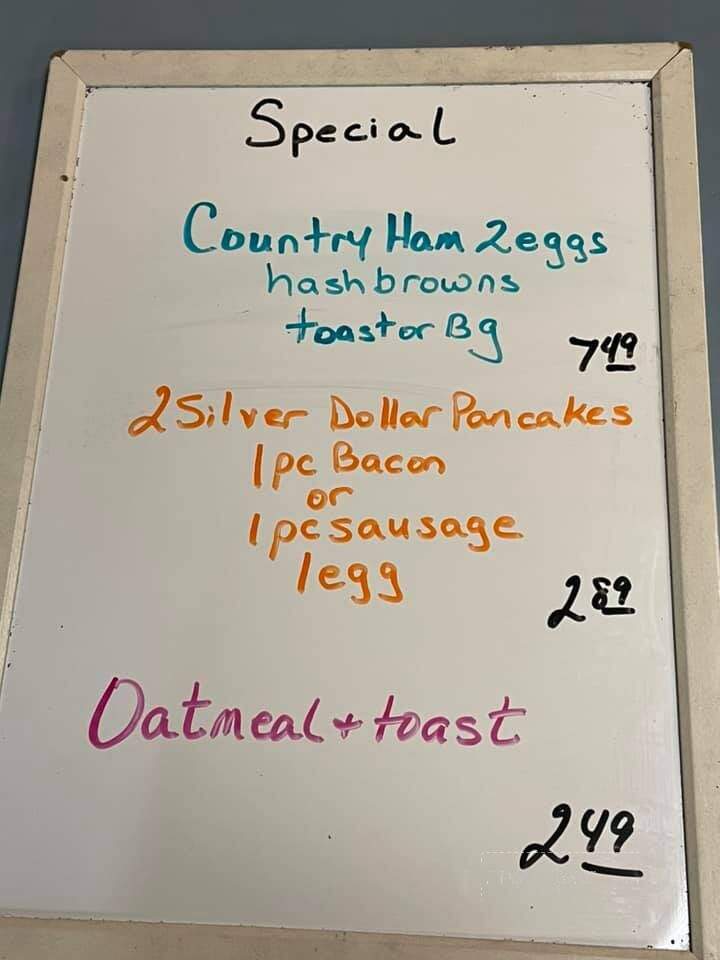 Special
Country Ham 2 eggs
hash browns
toast or Bg
7 49
2 Silver Dollar Pancakes
1 pc Bacon
or
1 pc sausage
1 egg
2 89
Oatmeal + toast
2 49